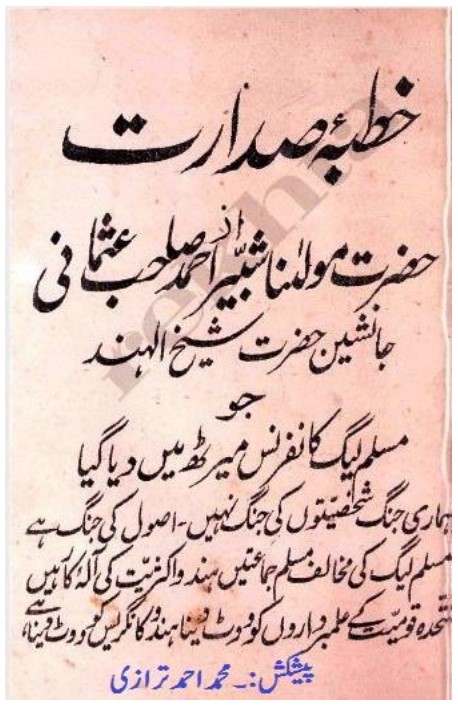 خطبۂ صدارت
از
حضرت مولٰنا شبیّر احمد صاحب عثمانی
جانشین حضرت شیخ الہند
جو
مسلم لیگ کانفرنس میرٹھ میں دیا گیا
ہماری جنگ شخصیتوں کی جنگ نہیں - اصول کی جنگ ہے
مسلم لیگ کی مخالف مسلم جماعتیں ہندو اکثریت کی آلۂ کار ہیں
متحدہ قومیت کے علمبرداروں کو ووٹ دینا ہندو کانگریس کو ووٹ دینا ہے
پیشکش :۔ محمد احمد ترازی
rekhta